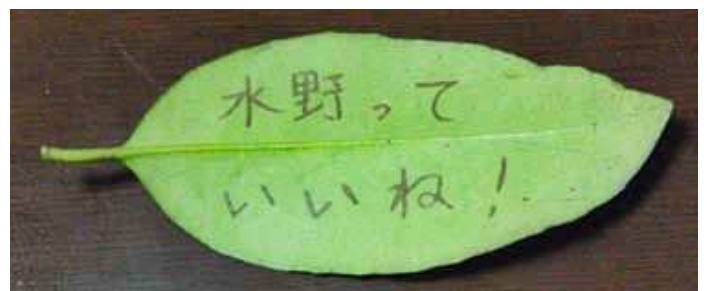 水野って
いいね!